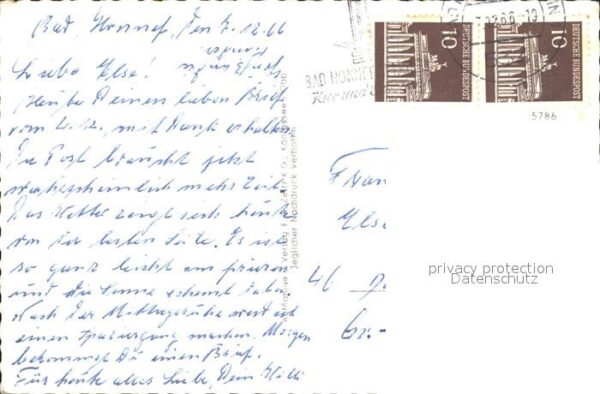 Bad Honnef, den 7.12.66
Liebe Else!
Heute Deinen lieben Brief
vom 2.12. mit Dank erhalten
Die Post braucht jetzt
wahrscheinlich mehr Zeit.
Das Wetter zeigt sich heute
von der besten Seite. Es ist
so ganz leicht am frieren
und die Sonne scheint dabei.
Nach der Mittagsruhe werd ich
einen Spaziergang machen. Morgen
bekommst Du einen Brief.
Für heute alles Liebe, Dein Willi
Verlag
Jeglicher Nachdruck verboten
BAD HONNEF
10
DEUTSCHE BUNDESPOST
10
DEUTSCHE BUNDESPOST
5786
Frau
Else
46
privacy protection
Datenschutz